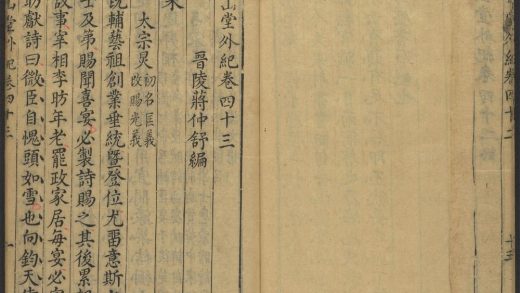 堂外紀卷四十二
十三
山堂外紀卷四十三
晉陵蔣仲舒編
宋
太宗炅
初名匡義
改賜光義
既輔藝祖創業垂統暨登位尤畱意斯
士及第賜聞喜宴必製詩賜之其後累
故事宰相李昉年老罷政家居每宴必
昉獻詩曰微臣自愧頭如雪也向鈞天
堂外紀卷四十三
一